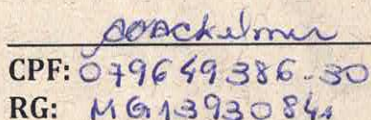 CPF: 079649386-30
RG: MG13930841